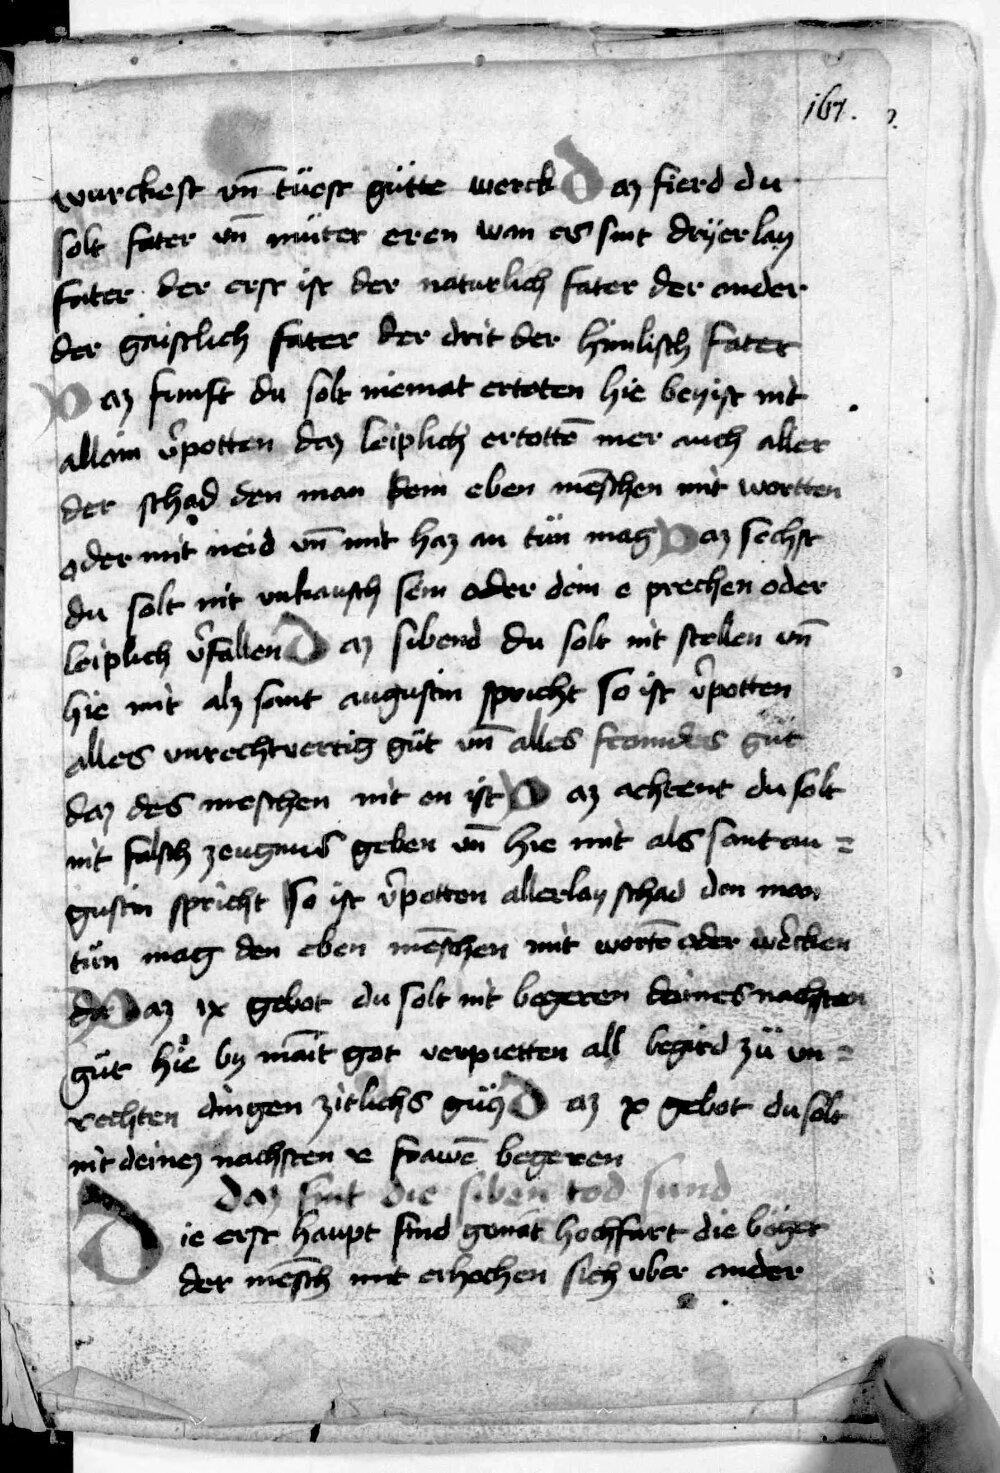 167.
wurckest vn̄ tüest gütte werck Daz fierd du
solt fater vn̄ müter eren wan es sint dryerlay
fater der erst ist der naturlich fater der ander
der gaistlich fater der drit der himlisch fater
Daz funft du solt niemat ertoten hie bey ist nit
allain v̉potten daz leiplich ertottē mer auch aller
der schad den man dem eben mēschen mit wortten
oder mit neid vn̄ mit haz an tün mag Daz sechst
du solt nit vnkausch sein oder dein e prechen oder
leiplich v̉fallen Daz sibend du solt nit stellen vn̄
hie mit alz sant augustin spricht so ist v̉potten
alles vnrechtvertig güt vn̄ alles fremdes güt
daz des meschen nit en ist Daz achtent du solt
nit falsch zeugnus geben vn̄ hie mit als sant au=
gustin spricht so ist v̉potten allerlay schad den man
tün mag den eben mēschen mit wortē oder wercken
Daz ix gebot du solt nit begeren deines nachsten
güt hie by maīt got verpietten all begird zü vn=
rechten dingen zitlichs gütz Daz x gebot du solt
nit deinez nachsten e frawē begeren
Daz sint die siben tod sund
Die erst haupt sund genāt hochfart die
der mēsch mit erhochen sich vber ander